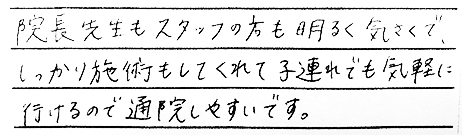 院長先生もスタッフの方も明るく気さくで、
しっかり施術もしてくれて子連れでも気軽に
行けるので通院しやすいです。